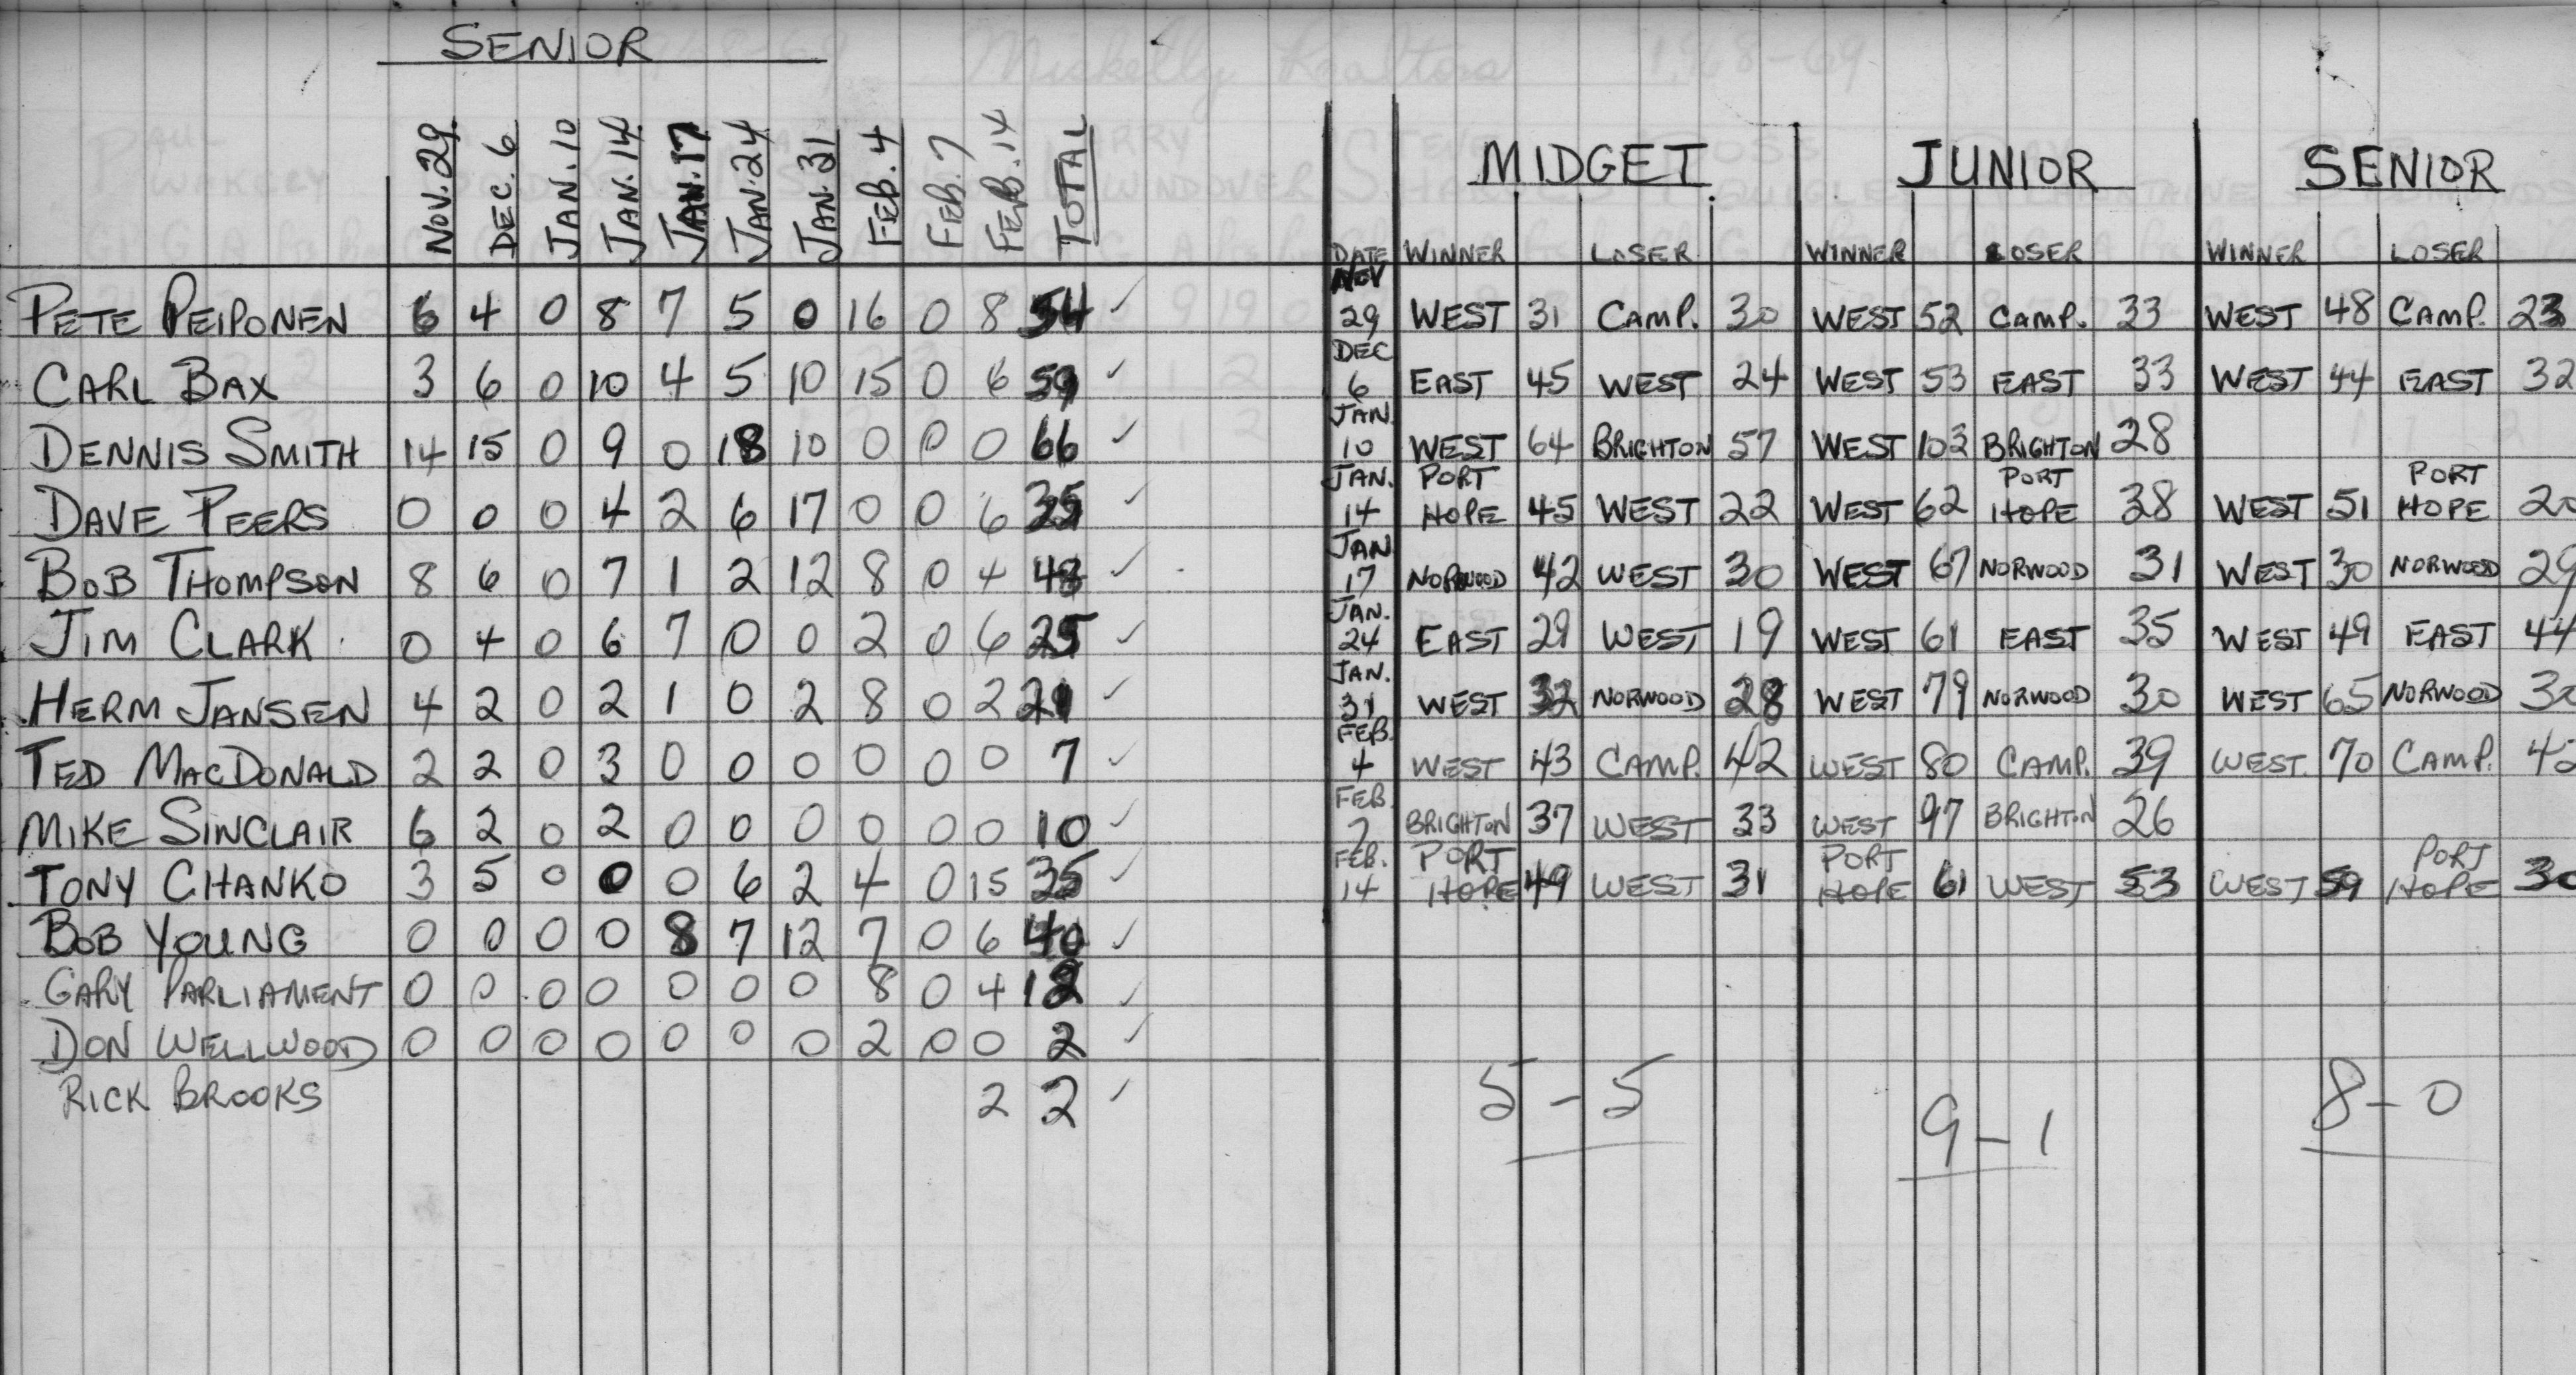 SENIOR
NOV. 29 DEC. 6 JAN. 10 JAN. 14 JAN. 17 JAN. 24 JAN. 31 FEB. 4 FEB. 7 FEB. 14 TOTAL
PETE PEIPONEN 6 4 0 8 7 5 0 16 0 8 54 ✓
CARL BAX 3 6 0 10 4 5 10 15 0 6 59 ✓
DENNIS SMITH 14 15 0 9 0 18 10 0 0 0 66 ✓
DAVE PEERS 0 0 0 4 2 6 17 0 0 6 35 ✓
BOB THOMPSON 8 6 0 7 1 2 12 8 0 4 48 ✓
JIM CLARK 0 4 0 6 7 0 0 2 0 6 25 ✓
HERM JANSEN 4 2 0 2 1 0 2 8 0 2 21 ✓
TED MACDONALD 2 2 0 3 0 0 0 0 0 0 7 ✓
MIKE SINCLAIR 6 2 0 2 0 0 0 0 0 0 10 ✓
TONY CHANKO 3 5 0 0 0 6 2 4 0 15 35 ✓
BOB YOUNG 0 0 0 0 8 7 12 7 0 6 40 ✓
GARY PARLIAMENT 0 0 0 0 0 0 0 8 0 4 12 ✓
DON WELLWOOD 0 0 0 0 0 0 0 2 0 0 2 ✓
RICK BROOKS 2 2 ✓
MIDGET JUNIOR SENIOR
DATE WINNER LOSER WINNER LOSER WINNER LOSER
NOV 29 WEST 31 CAMP. 30 WEST 52 CAMP. 33 WEST 48 CAMP. 23
DEC 6 EAST 45 WEST 24 WEST 53 EAST 33 WEST 44 EAST 32
JAN. 10 WEST 64 BRIGHTON 57 WEST 103 BRIGHTON 28
JAN. 14 PORT HOPE 45 WEST 22 WEST 62 PORT HOPE 38 WEST 51 PORT HOPE 20
JAN 17 NORWOOD 42 WEST 30 WEST 67 NORWOOD 31 WEST 30 NORWOOD 29
JAN. 24 EAST 29 WEST 19 WEST 61 EAST 35 WEST 49 EAST 44
JAN. 31 WEST 32 NORWOOD 28 WEST 79 NORWOOD 30 WEST 65 NORWOOD 30
FEB. 4 WEST 43 CAMP. 42 WEST 80 CAMP. 39 WEST. 70 CAMP. 42
FEB 7 BRIGHTON 37 WEST 33 WEST 97 BRIGHTON 26
FEB. 14 PORT HOPE 49 WEST 31 PORT HOPE 61 WEST 53 WEST 59 PORT HOPE 30
5 - 5
9 - 1
8 - 0